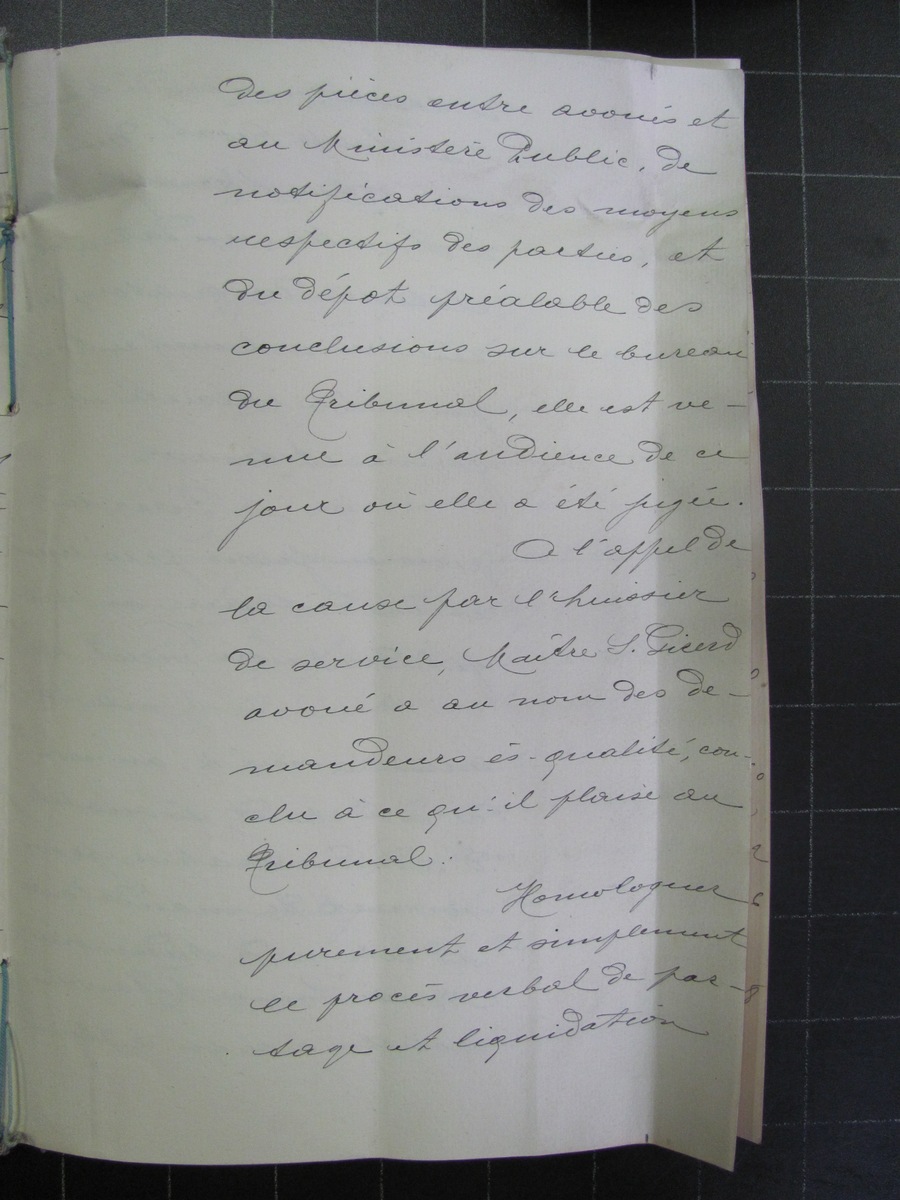 des pièces entre avoués et
au Ministère Public, de
notifications des moyens
respectifs des parties, et
du dépot préalable des
conclusions sur le bureau
du Tribunal, elle est ve-
nue à l'audience de ce
jour où elle a été jugée.
A l'appel de
la cause par l'huissier
de service, Maître S.
avoué a au nom des de-
mandeurs ès-qualité, con-
clu à ce qu'il plaise au
Tribunal.
Homologuer
purement et simplement
le procès verbal de par-
tage et liquidation